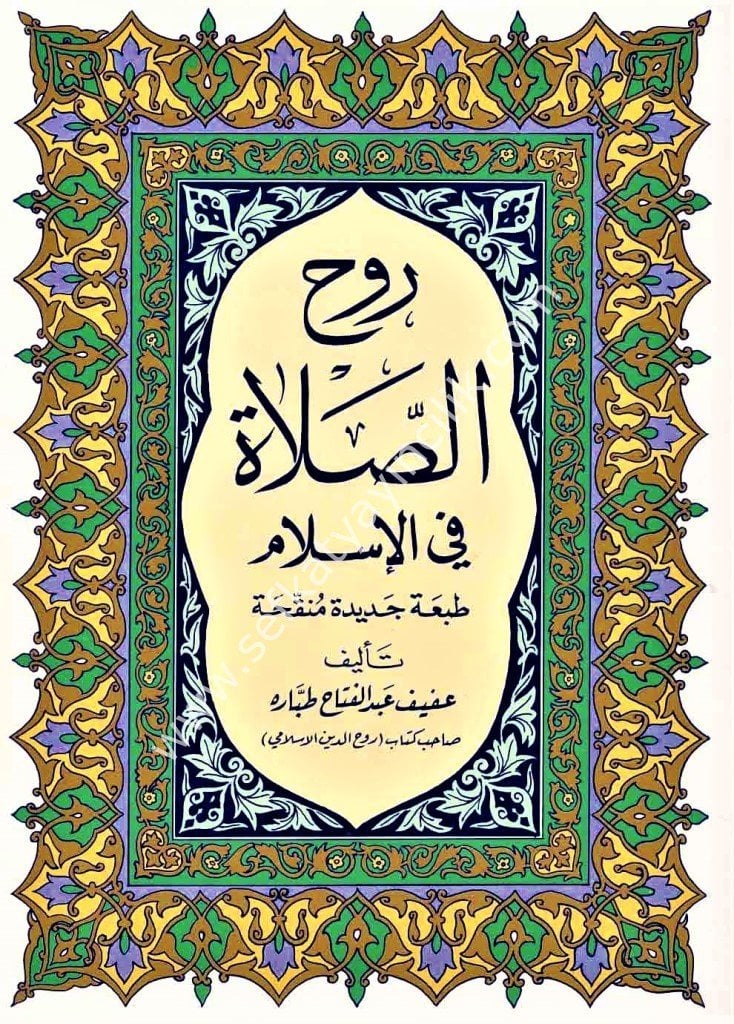 روح
الصَّلَاة
في الإسلام
طبعَة جَديدة مُنقّحَة
تَأليف
عفيف عَبد الفتاح طبَّاره
صاحب كتاب (روح الدين الاسلامي)
www.seckalyayincilik.com